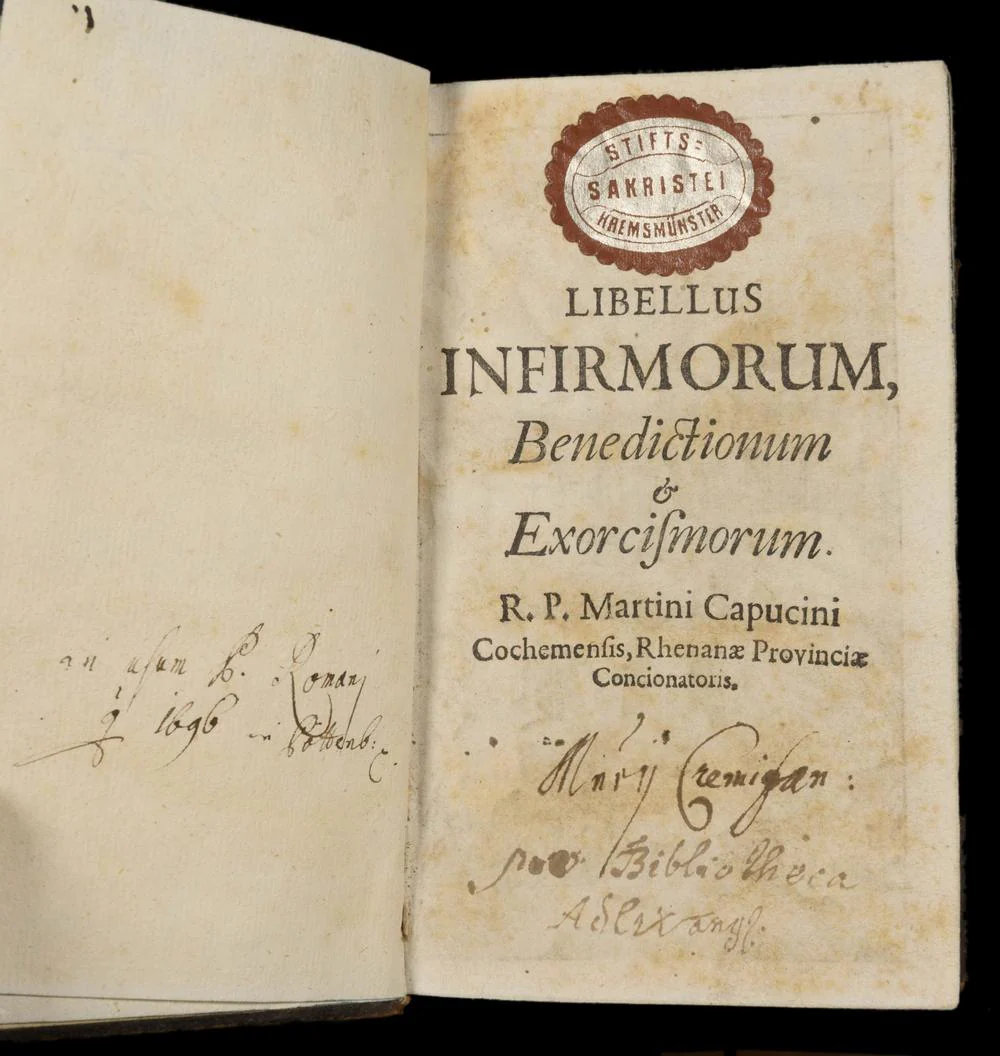 an usum P. Romanj
1696 in
STIFTS=
SAKRISTEI
KREMSMÜNSTER
LIBELLUS
INFIRMORUM,
Benedictionum
&
Exorciſmorum.
R. P. Martini Capucini
Cochemenſis, Rhenanæ Provinciæ
Concionatoris.
Cremifan:
Bibliotheca